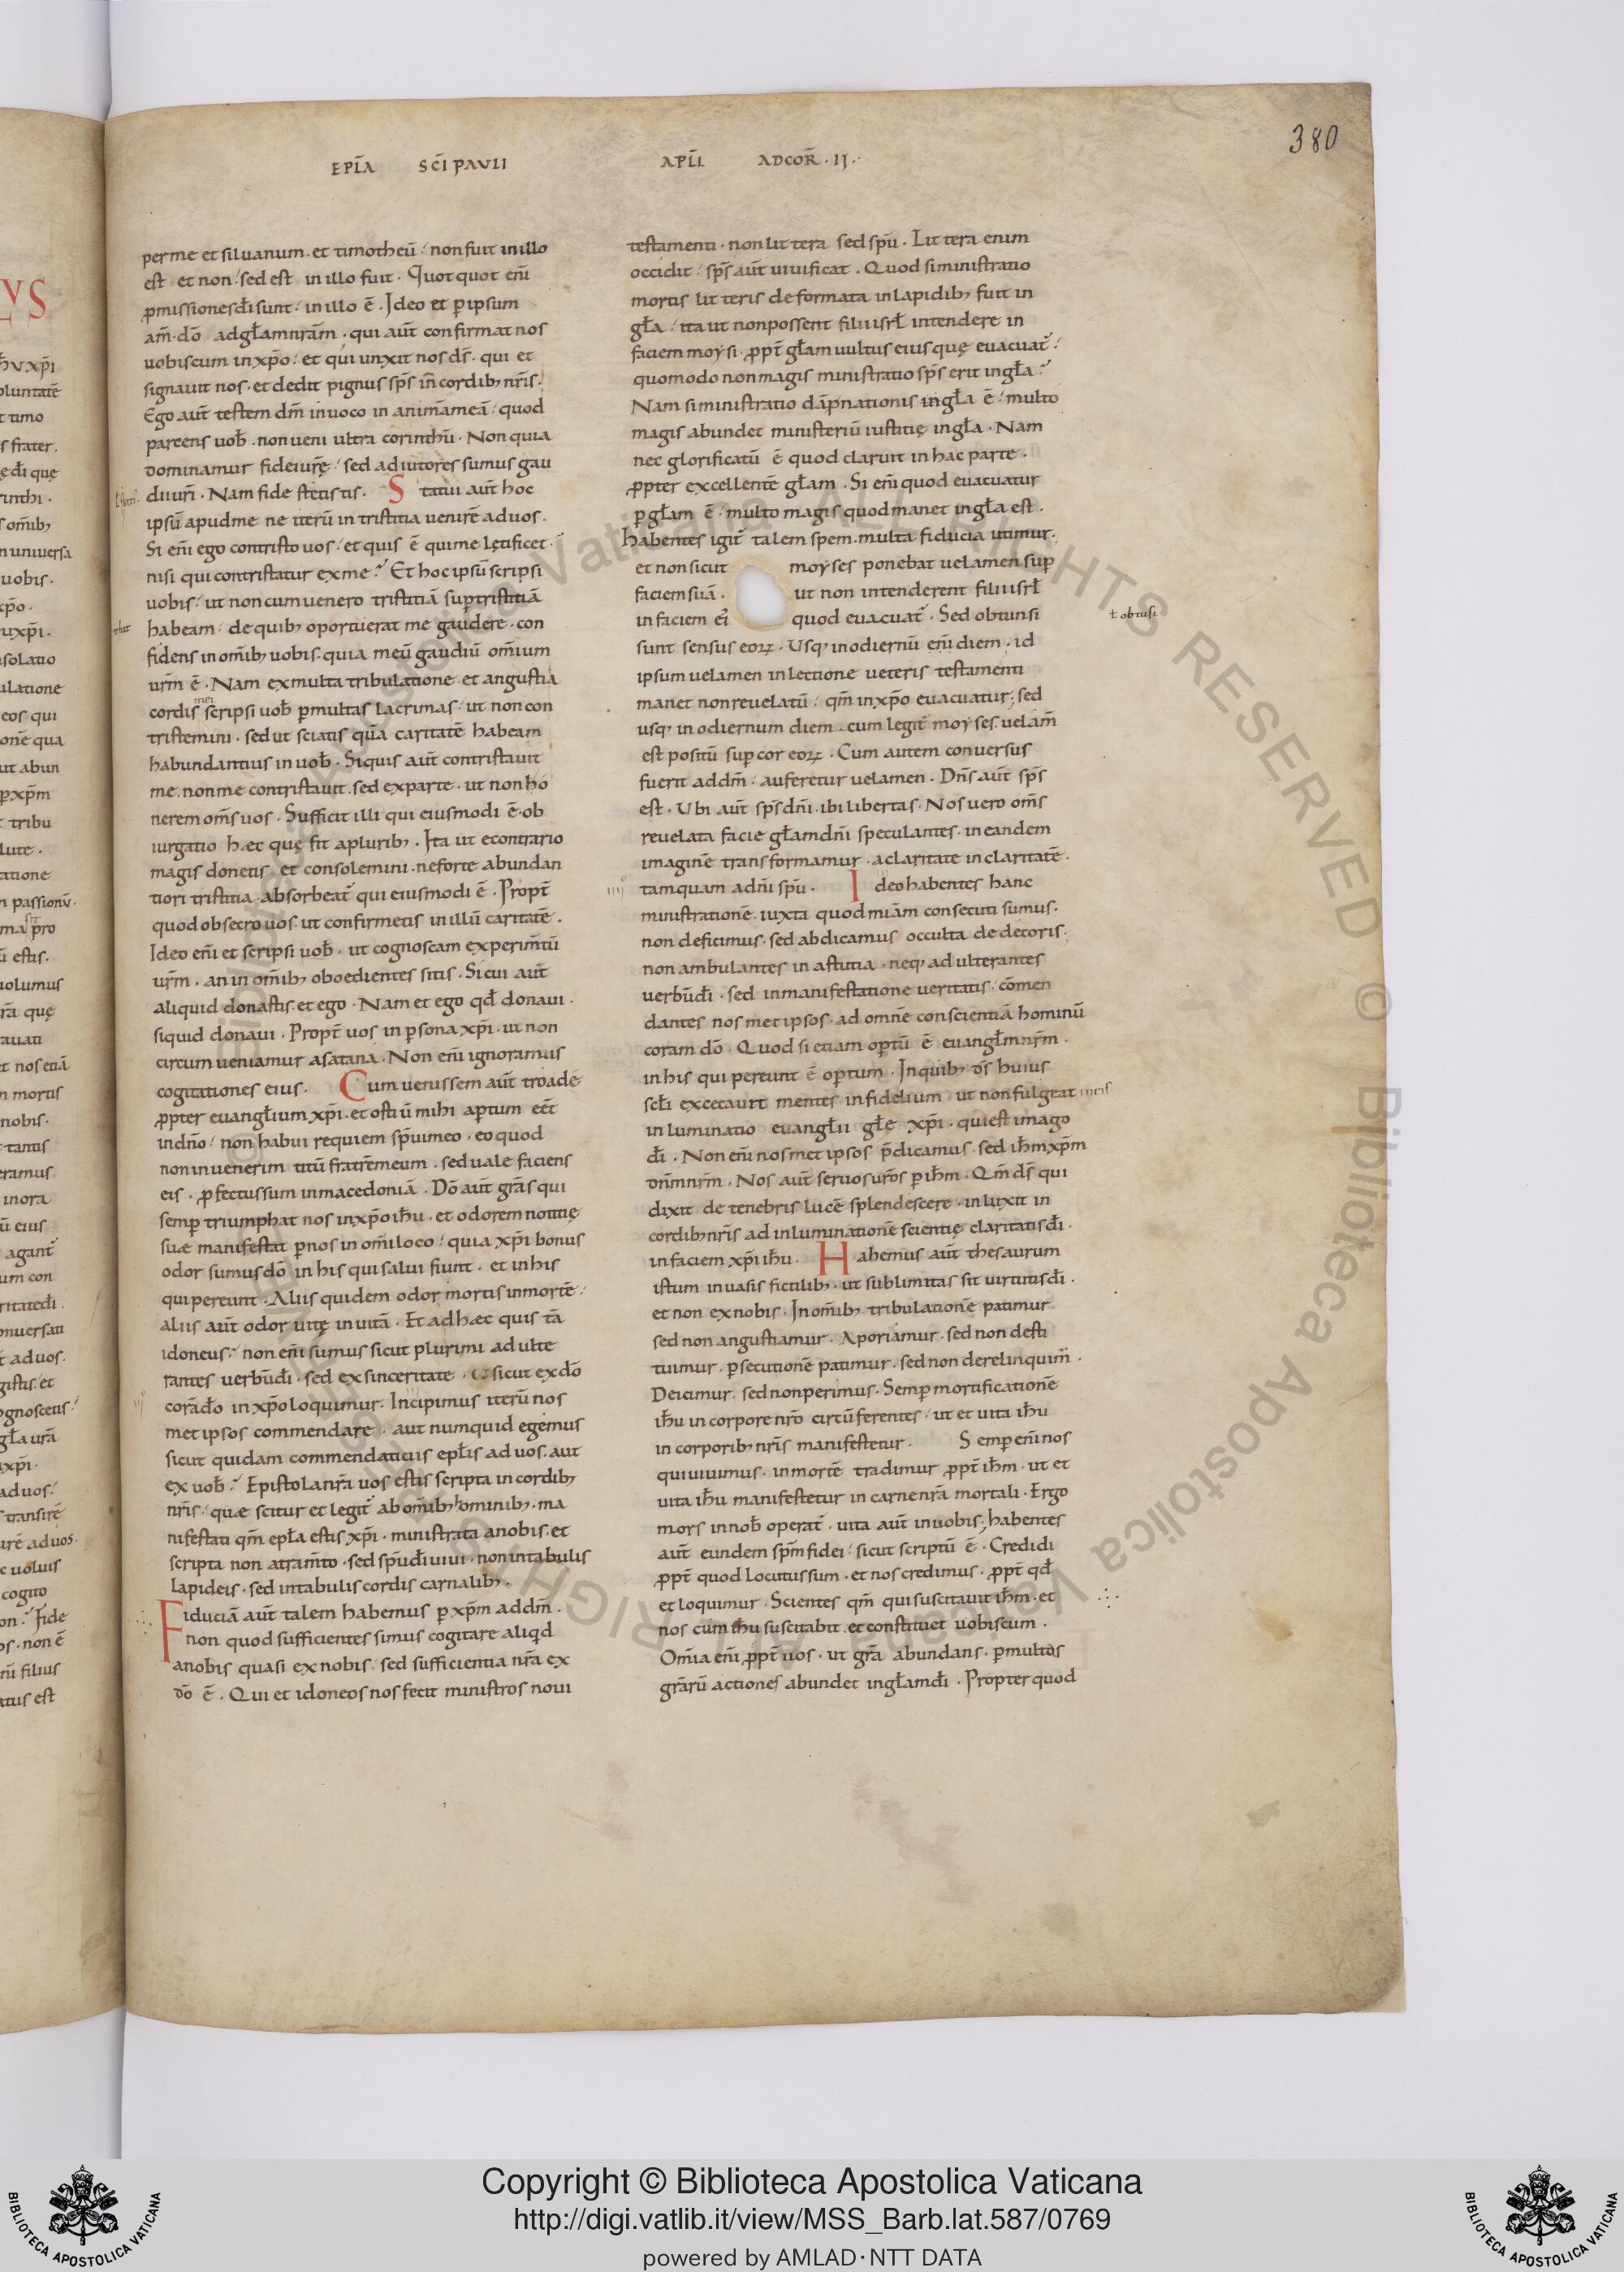 380
EPŁA SCĪ PAVLI APŁI ADCOR̄ · II ·
per me et siluanum · et timotheū · non fuit in illo
est et non · sed est in illo fuit · Quot quot enī
pmissiones dī sunt · in illo ē · Ideo et p ipsum
am̄ · dō ad głam nrām · qui aūt confirmat nos
uobiscum in xp̄o · et qui unxit nos ds̄ · qui et
signauit nos · et dedit pignus sp̄s in cordib; nrīs ·
Ego aūt testem dm̄ inuoco in animā meā · quod
parcens uob̄ · non ueni ultra corinthū · Non quia
dominamur fidei urȩ̄ · sed adiutores sumus gau
dii urī · Nam fide stetistis · Statui aūt hoc
ipsū apud me ne iterū in tristitia uenirē ad uos ·
Si enī ego contristo uos · et quis ē qui me lȩtificet ·
nisi qui contristatur ex me? Et hoc ipsū scripsi
uobis · ut non cum uenero tristitiā sup tristitiā
habeam · de quib; oportuerat me gaudere · con
fidens in om̄ib; uobis · quia meū gaudiū om̄ium
urm̄ ē · Nam ex multa tribulatione et angustia
mei
cordis scripsi uob̄ p multas lacrimas · ut non con
tristemini · sed ut sciatis quā caritatē habeam
habundantius in uob̄ · Si quis aūt contristauit
me · non me contristauit · sed ex parte · ut non ho
nerem om̄s uos · Sufficit illi qui eiusmodi ē · ob
iurgatio hæc quȩ fit a plurib; · Ita ut econtrario
magis donetis et consolemini · ne forte abundan
tiori tristitia absorbeat̄ qui eiusmodi ē · Propt̄
quod obsecro uos · ut confirmetis in illū caritatē ·
Ideo enī et scripsi uob̄ · ut cognoscam experim̄tū
urm̄ · an in om̄ib; oboedientes sitis · Si cui aūt
aliquid donastis · et ego · Nam et ego qd̄ donaui ·
si quid donaui · Propt̄ uos in psona xp̄i · ut non
circum ueniamur a satana · Non enī ignoramus
cogitationes eius · Cum uenissem aūt troadē
ppter euanglium xp̄i · et ostiū mihi aptum eēt
in dnō · non habui requiem spū meo · eo quod
non inuenerim titū fratrē meum · sed uale faciens
eis · pfectus sum in macedoniā · Dō aūt grās qui
semp triumphat nos in xp̄o ihū · et odorem notitiȩ
suæ manifestat p nos in om̄i loco · quia xp̄i bonus
odor sumus dō in his qui salui fiunt · et in his
qui pereunt · Aliis quidem odor mortis in mortē ·
aliis aūt odor uitȩ in uitā · Et ad hæc quis tā
idoneus? non enī sumus sicut plurimi adulte
rantes uerbū dī · sed ex sinceritate · sicut ex dō
corā dō in xp̄o loquimur · Incipimus iterū nos
met ipsos commendare · aut numquid egemus
sicut quidam commendaticiis epłis ad uos · aut
ex uob̄? Epistola nrā uos estis scripta in cordib;
nrīs · quæ scitur et legit̄ ab om̄ib; hominib; · ma
nifestati qm̄ epła estis xp̄i · ministrata a nobis · et
scripta non atram̄to · sed spū dī uiui · non in tabulis
lapideis · sed in tabulis cordis carnalib; ·
Fiduciā aūt talem habemus p xp̄m ad dm̄ ·
non quod sufficientes simus cogitare aliqd
a nobis quasi ex nobis · sed sufficientia nrā ex
dō ē · Qui et idoneos nos fecit ministros noui
testamenti · non littera sed spū · Littera enim
occidit · sp̄s aūt uiuificat · Quod si ministratio
mortis litteris deformata in lapidib; fuit in
gła · ita ut non possent filii isrł intendere in
faciem moysi · ppt̄ głam uultus eius quȩ euacuat̄ ·
quomodo non magis ministratio sp̄s erit in gła?
Nam si ministratio dāpnationis in gła ē · multo
magis abundet ministeriū iustitiȩ in gła · Nam
nec glorificatū ē quod claruit in hac parte ·
ppter excellentē głam · Si enī quod euacuatur
p głam ē · multo magis quod manet in gła est ·
Habentes igit̄ talem spem · multa fiducia utimur ·
et non sicut moyses ponebat uelamen sup
faciem suā · ut non intenderent filii isrł
in faciem ei quod euacuat̄ · Sed obtunsi
ł obtusi
sunt sensus eoꝝ · Usq; in odiernū enī diem · id
ipsum uelamen in lectione ueteris testamenti
manet non reuelatū · qm̄ in xp̄o euacuatur ; sed
usq; in odiernum diem · cum legit̄ moyses · uelam̄
est positū sup cor eoꝝ · Cum autem conuersus
fuerit ad dm̄ · auferetur uelamen · Dn̄s aūt sp̄s
est · Ubi aūt sp̄s dn̄i · ibi libertas · Nos uero om̄s
reuelata facie głam dn̄i speculantes · in eandem
imaginē transformamur · a claritate in claritatē ·
tamquam a dn̄i spū · Ideo habentes hanc
ministrationē · iuxta quod miām consecuti sumus ·
non deficimus · sed abdicamus occulta dedecoris ·
non ambulantes in astutia · neq; adulterantes
uerbū dī · sed in manifestatione ueritatis · cōmen
dantes nosmet ipsos · ad omnē conscientiā hominū
coram dō · Quod si etiam optū ē euangłm nrm̄ ·
in his qui pereunt ē optum · In quib; ds̄ huius
scłi excecauit mentes infidelium ut non fulgeat
in luminatio euangłii głȩ xp̄i · qui est imago
dī · Non enī nosmet ipsos p̄dicamus · sed ihm̄ xp̄m
dn̄m nrm̄ · Nos aūt seruos urōs p ihm̄ · Qm̄ ds̄ qui
dixit de tenebris lucē splendescere · in luxit in
cordib; nrīs ad in luminationē scientiȩ claritatis dī ·
in faciem xp̄i ihū · Habemus aūt thesaurum
istum in uasis fictilib; · ut sublimitas sit uirtutis dī ·
et non ex nobis · In om̄ib; tribulationē patimur
sed non angustiamur · Aporiamur · sed non desti
tuimur · psecutionē patimur · sed non derelinquim̄ ·
Deicimur · sed non perimus · Semp mortificationē
ihū in corpore nrō circūferentes · ut et uita ihū
in corporib; nrīs manifestetur · Semp enī nos
qui uiuimus · in mortē tradimur ppt̄ ihm̄ · ut et
uita ihū manifestetur in carne nrā mortali · Ergo
mors in nob̄ operat̄ · uita aūt in uobis ; habentes
aūt eundem spm̄ fidei · sicut scriptū ē · Credidi
ppt̄ quod locutus sum · et nos credimus · ppt̄ qd̄
et loquimur · Scientes qm̄ qui suscitauit ihm̄ · et
nos cum ihū suscitabit · et constituet uobiscum ·
Om̄ia enī ppt̄ uos · ut grā abundans · p multos
grārū actiones abundet in głam dī · Propter quod
© Biblioteca Apostolica Vaticana ALL RIGHTS RESERVED
Copyright © Biblioteca Apostolica Vaticana
http://digi.vatlib.it/view/MSS_Barb.lat.587/0769
powered by AMLAD·NTT DATA
BIBLIOTECA APOSTOLICA VATICANA
BIBLIOTECA APOSTOLICA VATICANA